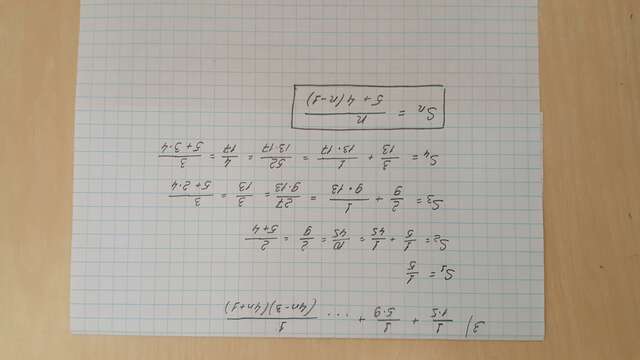 3) 1/(1·5) + 1/(5·9) + ... 1/((4n-3)(4n+1))
S₁ = 1/5
S₂ = 1/5 + 1/45 = 10/45 = 2/9 = 2/(5+4)
S₃ = 2/9 + 1/(9·13) = 27/(9·13) = 3/13 = 3/(5+2·4)
S₄ = 3/13 + 1/(13·17) = 52/(13·17) = 4/17 = 3/(5+3·4)
Sₙ = n/(5+4(n-1))